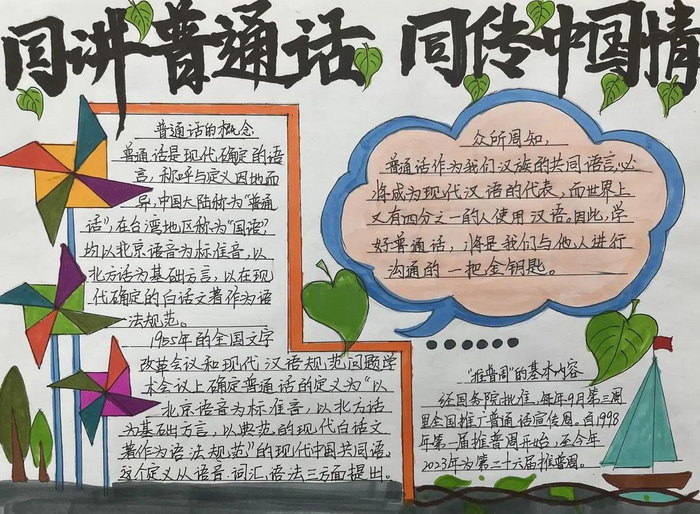 同讲普通话 同传中国情
普通话的概念
普通话是现代确定的语
言，称呼与定义因地而
异，中国大陆称为“普通
话”，在台湾地区称为“国语”，
均以北京语音为标准音，以
北方话为基础方言，以在现
代确定的白话文著作为语
法规范。
1955年的全国文字
改革会议和现代汉语规范问题学
术会议上确定普通话的定义为“以
北京语音为标准音，以北方话
为基础方言，以典范的现代白话文
著作为语法规范”的现代中国共同语。
这个定义从语音、词汇、语法三方面提出。
众所周知，
普通话作为我们汉族的共同语言，必
将成为现代汉语的代表，而世界上
又有四分之一的人使用汉语。因此，学
好普通话，将是我们与他人进行
沟通的一把金钥匙。
“推普周”的基本内容
经国务院批准，每年9月第三周
是全国推广普通话宣传周。自1998
年第一届推普周开始，至今年
2023年为第二十六届推普周。